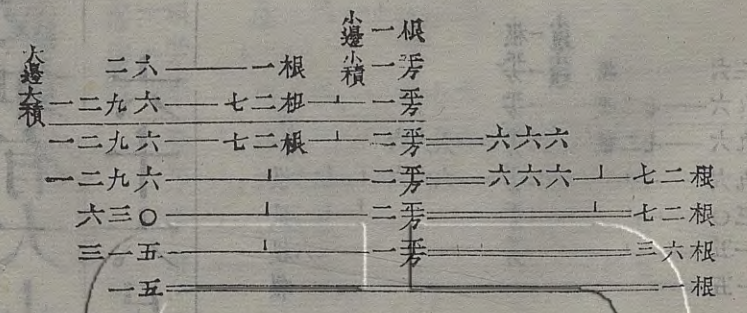 小邊 一根
小積 一平方
大邊 二六——一根
大積 一二九六——七二根⊥一平方
一二九六——七二根⊥二平方══六六六
一二九六⊥二平方══六六六⊥七二根
六三〇⊥二平方══七二根
三一五⊥一平方══三六根
一五══一根